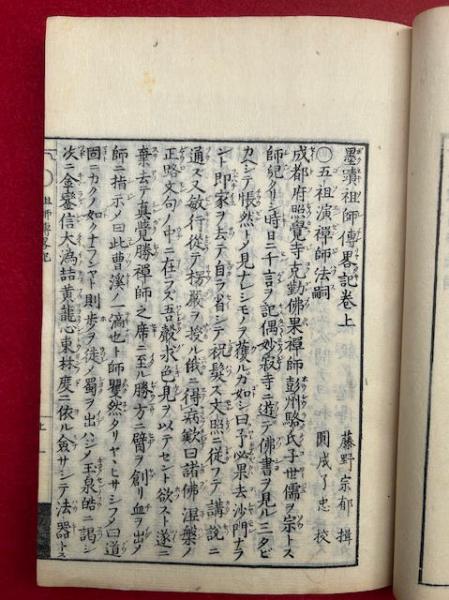 墨蹟祖師傳畧記巻上
藤野宗郁 揖
圓成了忠 校
五祖演禪師法嗣
成都府昭覺寺克勤佛果禪師彭州駱氏子世儒ヲ宗トス
師紀クリシ時日ニ千言ヲ記偶妙寂寺ニ遊テ佛書ヲ見ル三タビ
カヘシテ悵然トメ見ナレシモノヲ獲ルカ如シ曰予必果去沙門ナラ
ント即家ヲ去テ自ラ省シテ祝髪ス文照ニ従フテ講説ニ
通ス又敏行從テ楞厳ヲ授ル俄ニ得病歎曰諸佛涅槃ノ
正路文句ノ中ニ在ラス吾聲求色見ヲ以テセント欲ス遂ニ
棄去テ真覺勝禪師之席ニ至ル勝方ニ臂ヲ創リ血ヲ出メ
師ニ指示メ曰此曹溪ノ一滴也ト師矍然タリヤヽヒサシフメ曰道
固ニカクノ如クナランヤト則歩ヲ徙メ蜀ヲ出ハシメ玉泉皓ニ謁シ
次ニ金鑾信大溈喆黄龍心東林度ニ依ル僉サシテ法器トス
祖師傳畧記
上 一